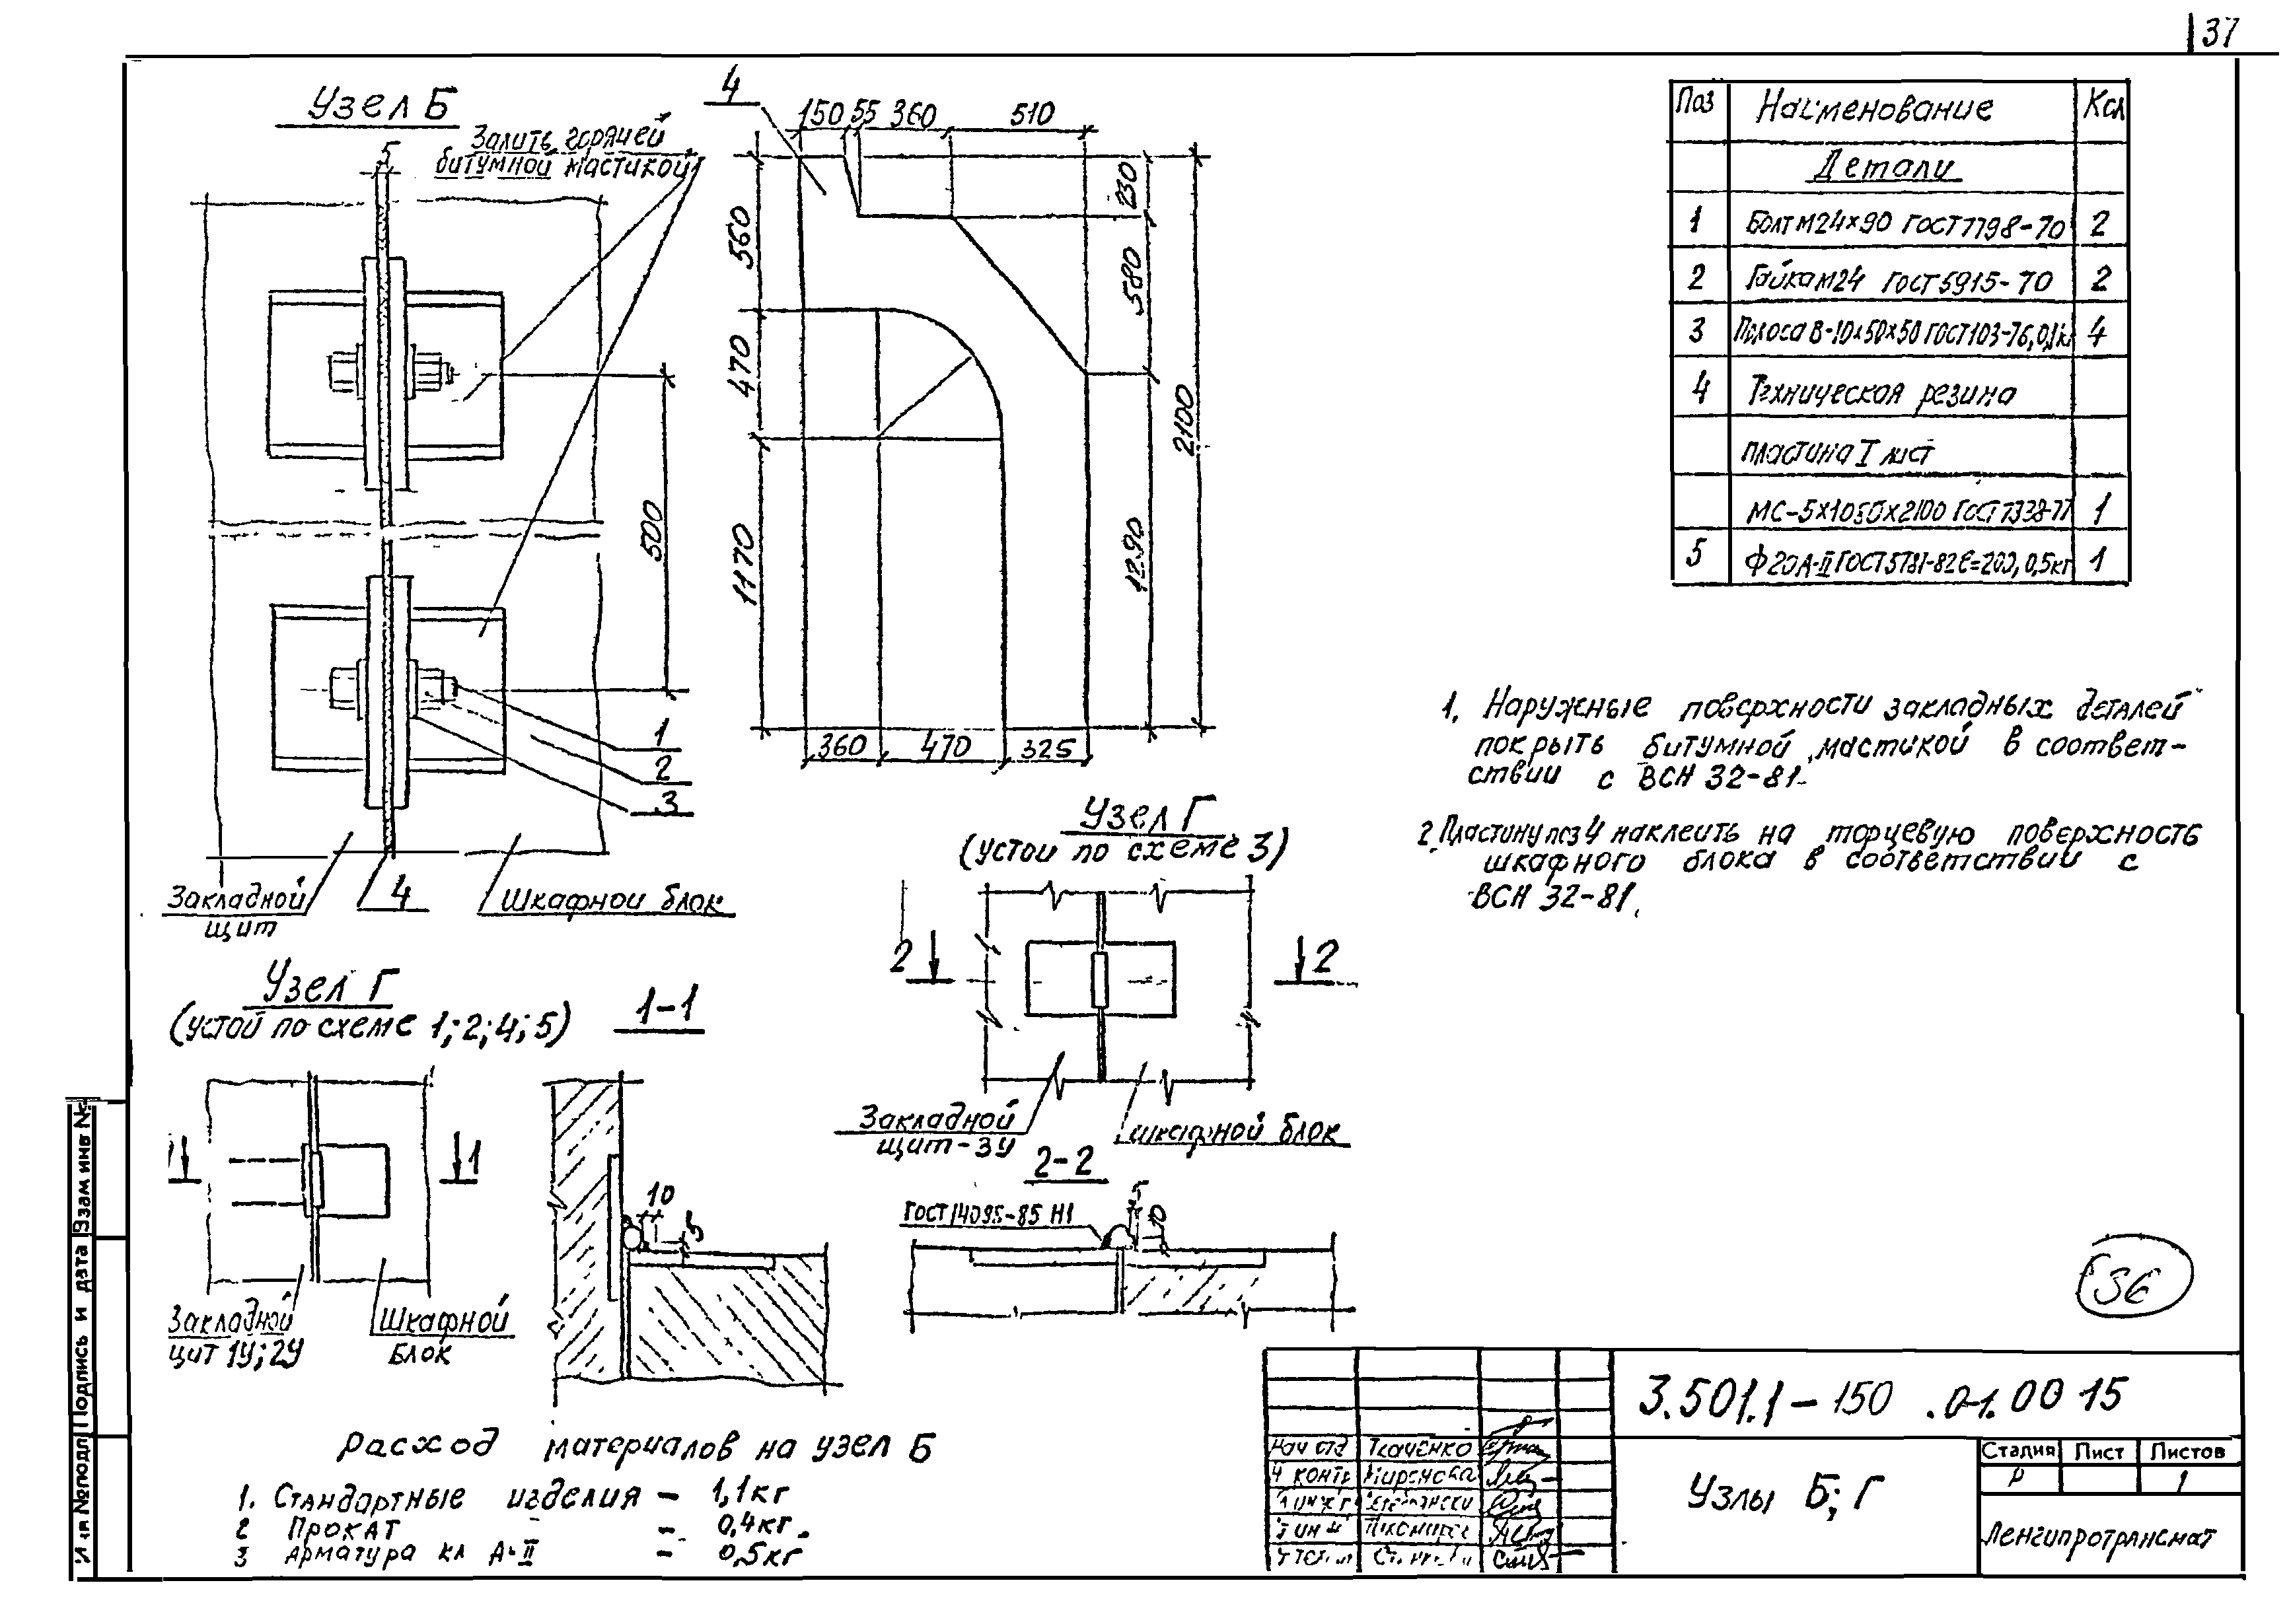 37
Узел Б
5
Залить горячей
битумной мастикой
500
1
2
3
Закладной
щит
4
Шкафной блок
4
150 55 360 510
560
470
1170
230
580
1290
2100
360 470 325
Поз Наименование Кол
Детали
1 Болт М24×90 ГОСТ 7798-70 2
2 Гайка М24 ГОСТ 5915-70 2
3 Полоса В-10×50×50 ГОСТ 103-76, 0,1кг 4
4 Техническая резина
пластина I лист
МС-5×1050×2100 ГОСТ 7338-77 1
5 Ф20А-II ГОСТ 5781-82 ℓ=200, 0,5кг 1
1. Наружные поверхности закладных деталей
покрыть битумной мастикой в соответ-
ствии с ВСН 32-81.
2. Пластину поз 4 наклеить на торцевую поверхность
шкафного блока в соответствии с
ВСН 32-81.
Узел Г
(устои по схеме 3)
2 2
Закладной
щит-3У
шкафной блок
2-2
ГОСТ 14095-85 Н1
5
10
Узел Г
(устой по схеме 1; 2; 4; 5)
1 1
Закладной
щит 1У; 2У
Шкафной
блок
1-1
10
5
Расход материалов на узел Б
1. Стандартные изделия - 1,1кг
2 Прокат - 0,4кг.
3 Арматура кл А-II - 0,5кг
36
3.501.1-150 .0-1.00 15
Нач отд Ткаченко
Н контр
Узлы Б; Г
Стадия Лист Листов
Р 1
Ленгипротрансмост
Инв №подл Подпись и дата Взам инв №